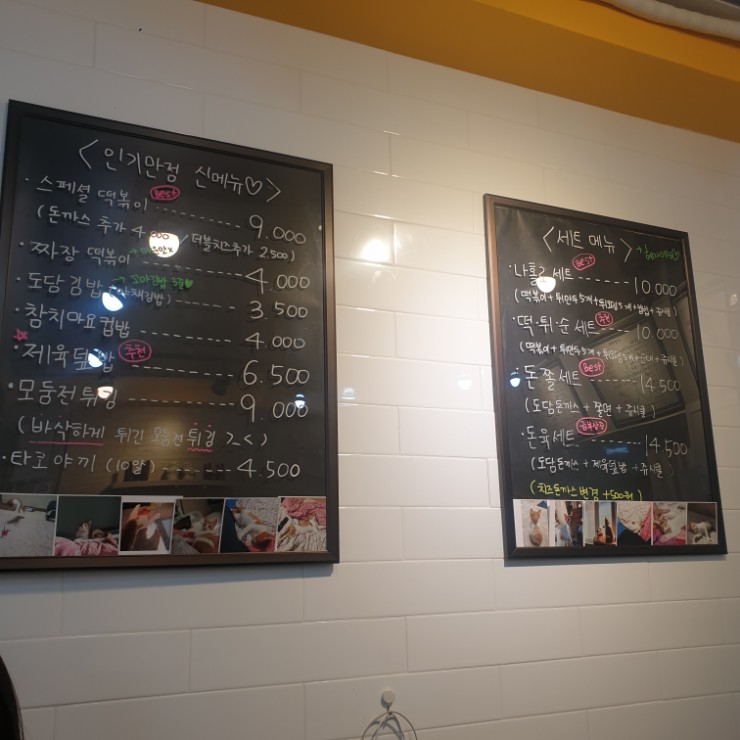 <인기만점 신메뉴♡>
· 스페셜 떡볶이 Best 9.000
(돈까스 추가 4.000 / 더블치즈추가 2.500)
· 짜장 떡볶이 4.000
· 도담김밥 → 꼬마김밥 3줄♥ 3.500
참치마요컵밥 4.000
· 제육덮밥 추천 6.500
· 모둠전튀김 9.000
(바삭하게 튀긴 모둠전튀김 > <)
· 타코야끼 (10알) 4.500
<세트 메뉴>
· 나홀로세트 Best 10.000
(떡볶이 + 튀만두 5개 +
· 떡·튀·순 세트 추천 10.000
(떡볶이 + 튀만두 5개 +
· 돈쫄세트 Best 14.500
(도담돈까스 + 쫄면 + 쥬시쿨)
· 돈육세트 14.500
(도담돈까스 + 제육덮밥 + 쥬시쿨)
(치즈돈까스변경 +500원)